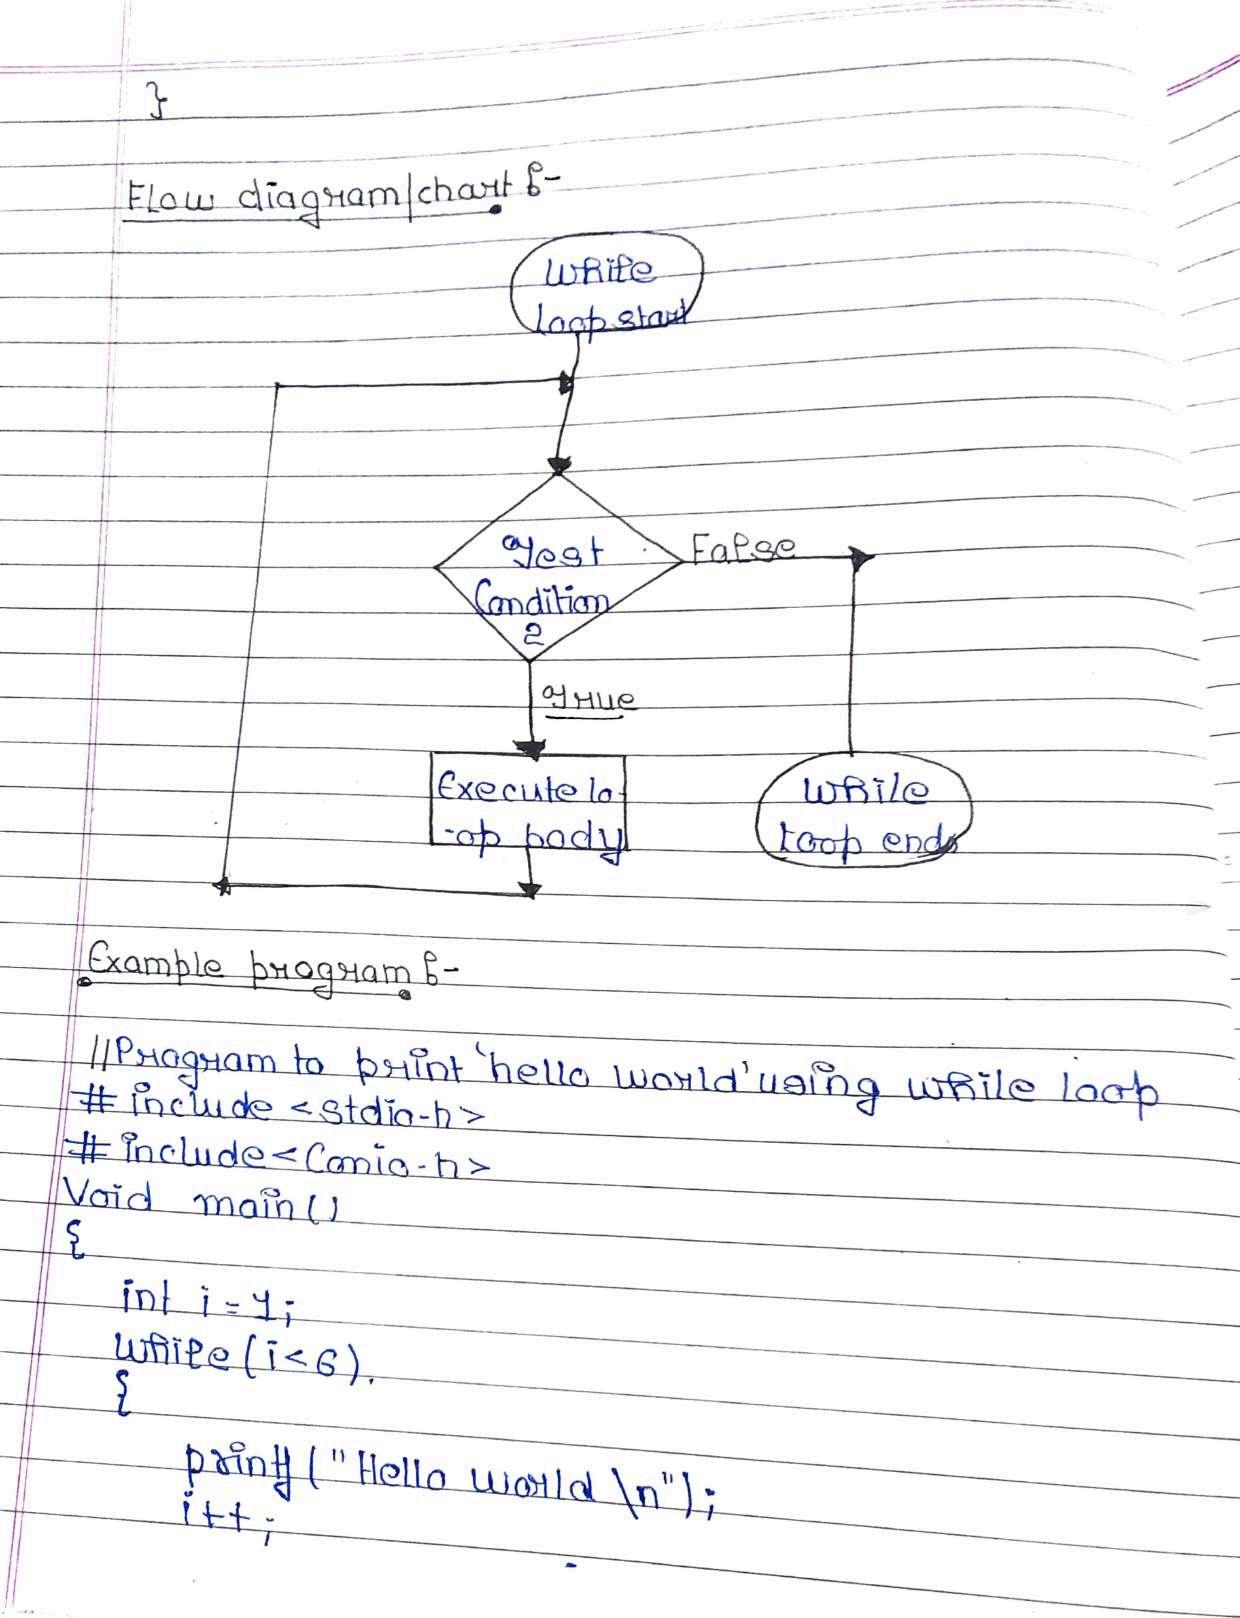 }
Flow diagram/chart :-
While
loop start
Test
False
Condition
?
True
Execute lo-
-op body
While
loop ends
Example program :-
//Program to print 'hello world' using while loop
# include <stdio.h>
# include <Conio.h>
Void main()
{
int i = 1;
while (i<6).
{
printf ("Hello world \n");
i++;